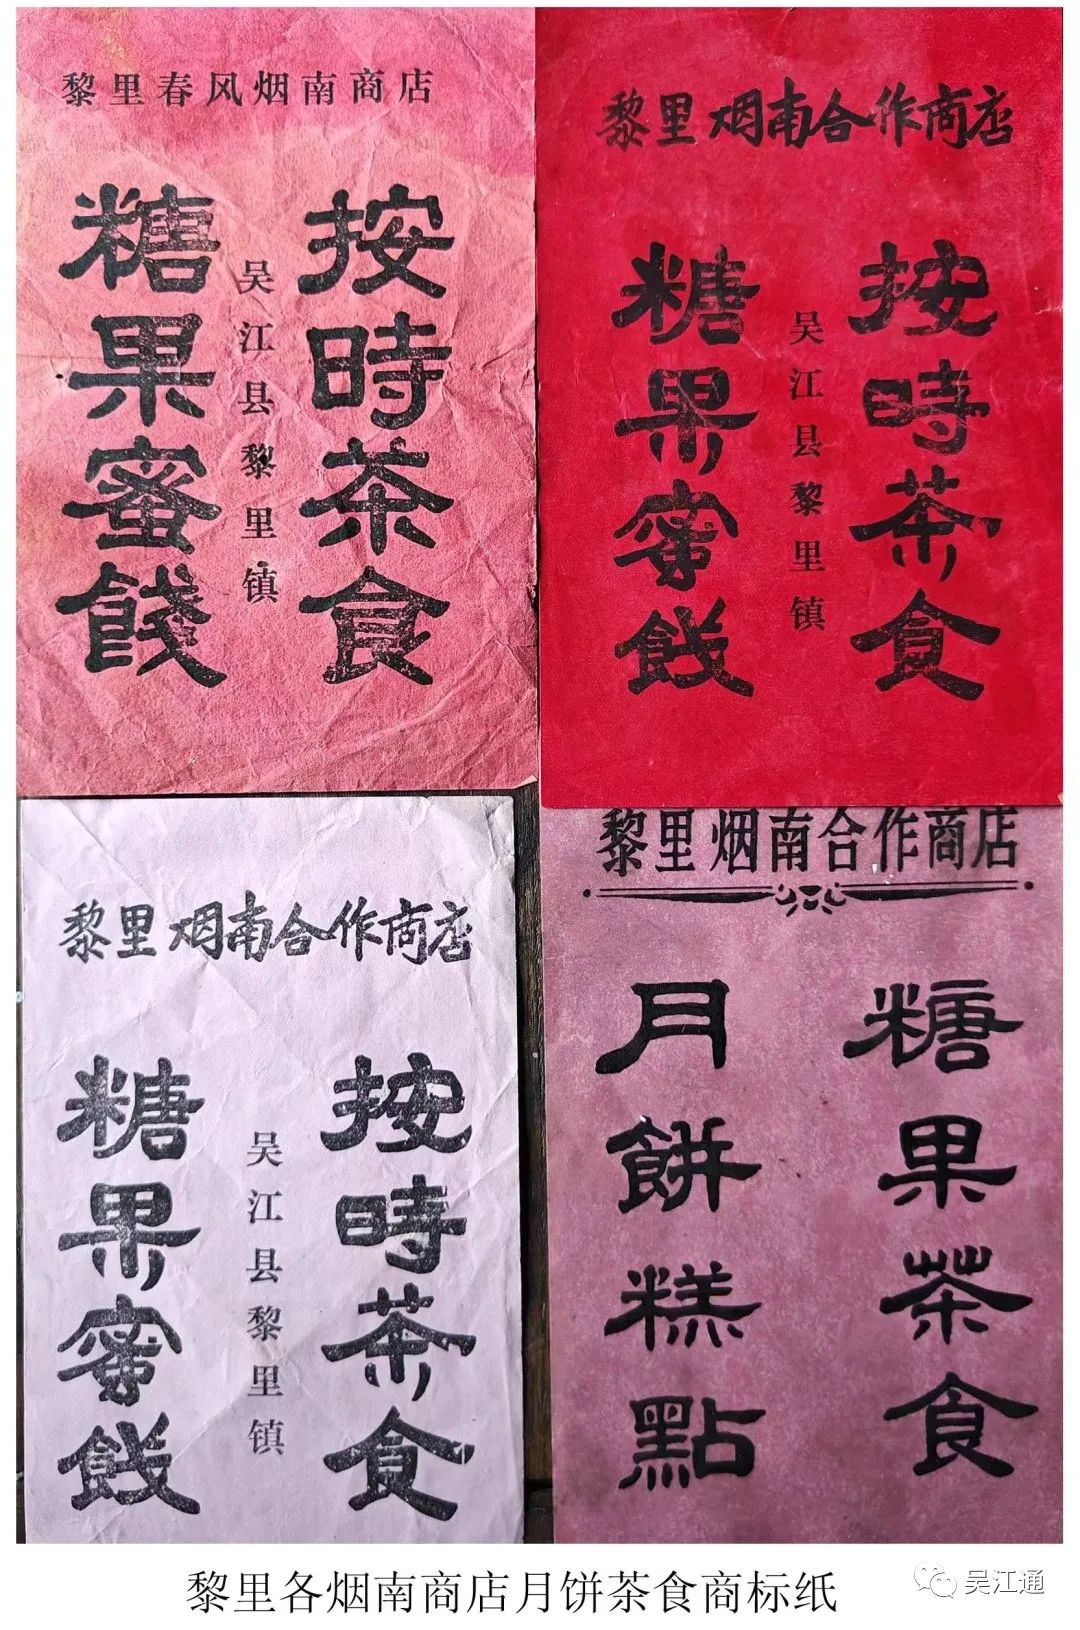 黎里春风烟南商店
按時茶食
吴江县黎里镇
糖果蜜餞
黎里烟南合作商店
按時茶食
吴江县黎里镇
糖果蜜餞
黎里烟南合作商店
按時茶食
吴江县黎里镇
糖果蜜餞
黎里烟南合作商店
糖果茶食
月餅糕點
黎里各烟南商店月饼茶食商标纸
吴江通